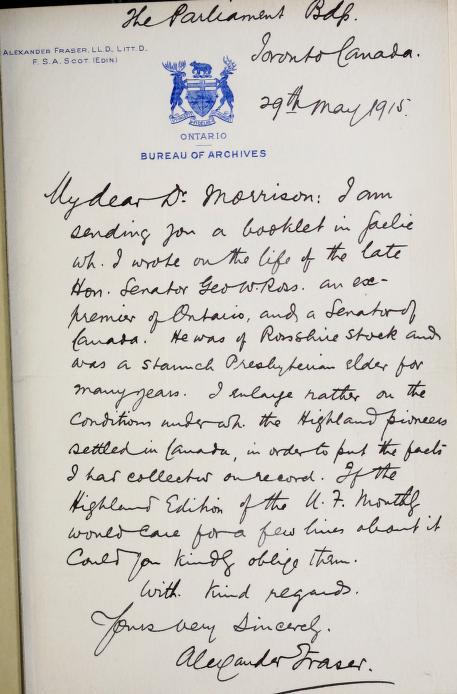 The Parliament Bdgs.
ALEXANDER FRASER, LL.D., LITT.D.
F. S. A. SCOT. (EDIN)
Toronto Canada.
29th May 1915.
ONTARIO
BUREAU OF ARCHIVES
My dear Dr. Morrison: I am
sending you a booklet in Gaelic
wh. I wrote on the life of the late
Hon. Senator Geo W. Ross. an ex-
premier of Ontario, and a Senator of
Canada. He was of Rossshire stock and
was a staunch Presbyterian elder for
many years. I enlarge rather on the
conditions under wh. the Highland pioneers
settled in Canada, in order to put the facts
I had collected on record. If the
Highland Edition of the U. F. Monthly
would care for a few lines about it
Could you kindly oblige them.
With kind regards.
Yours very sincerely.
Alexander Fraser.